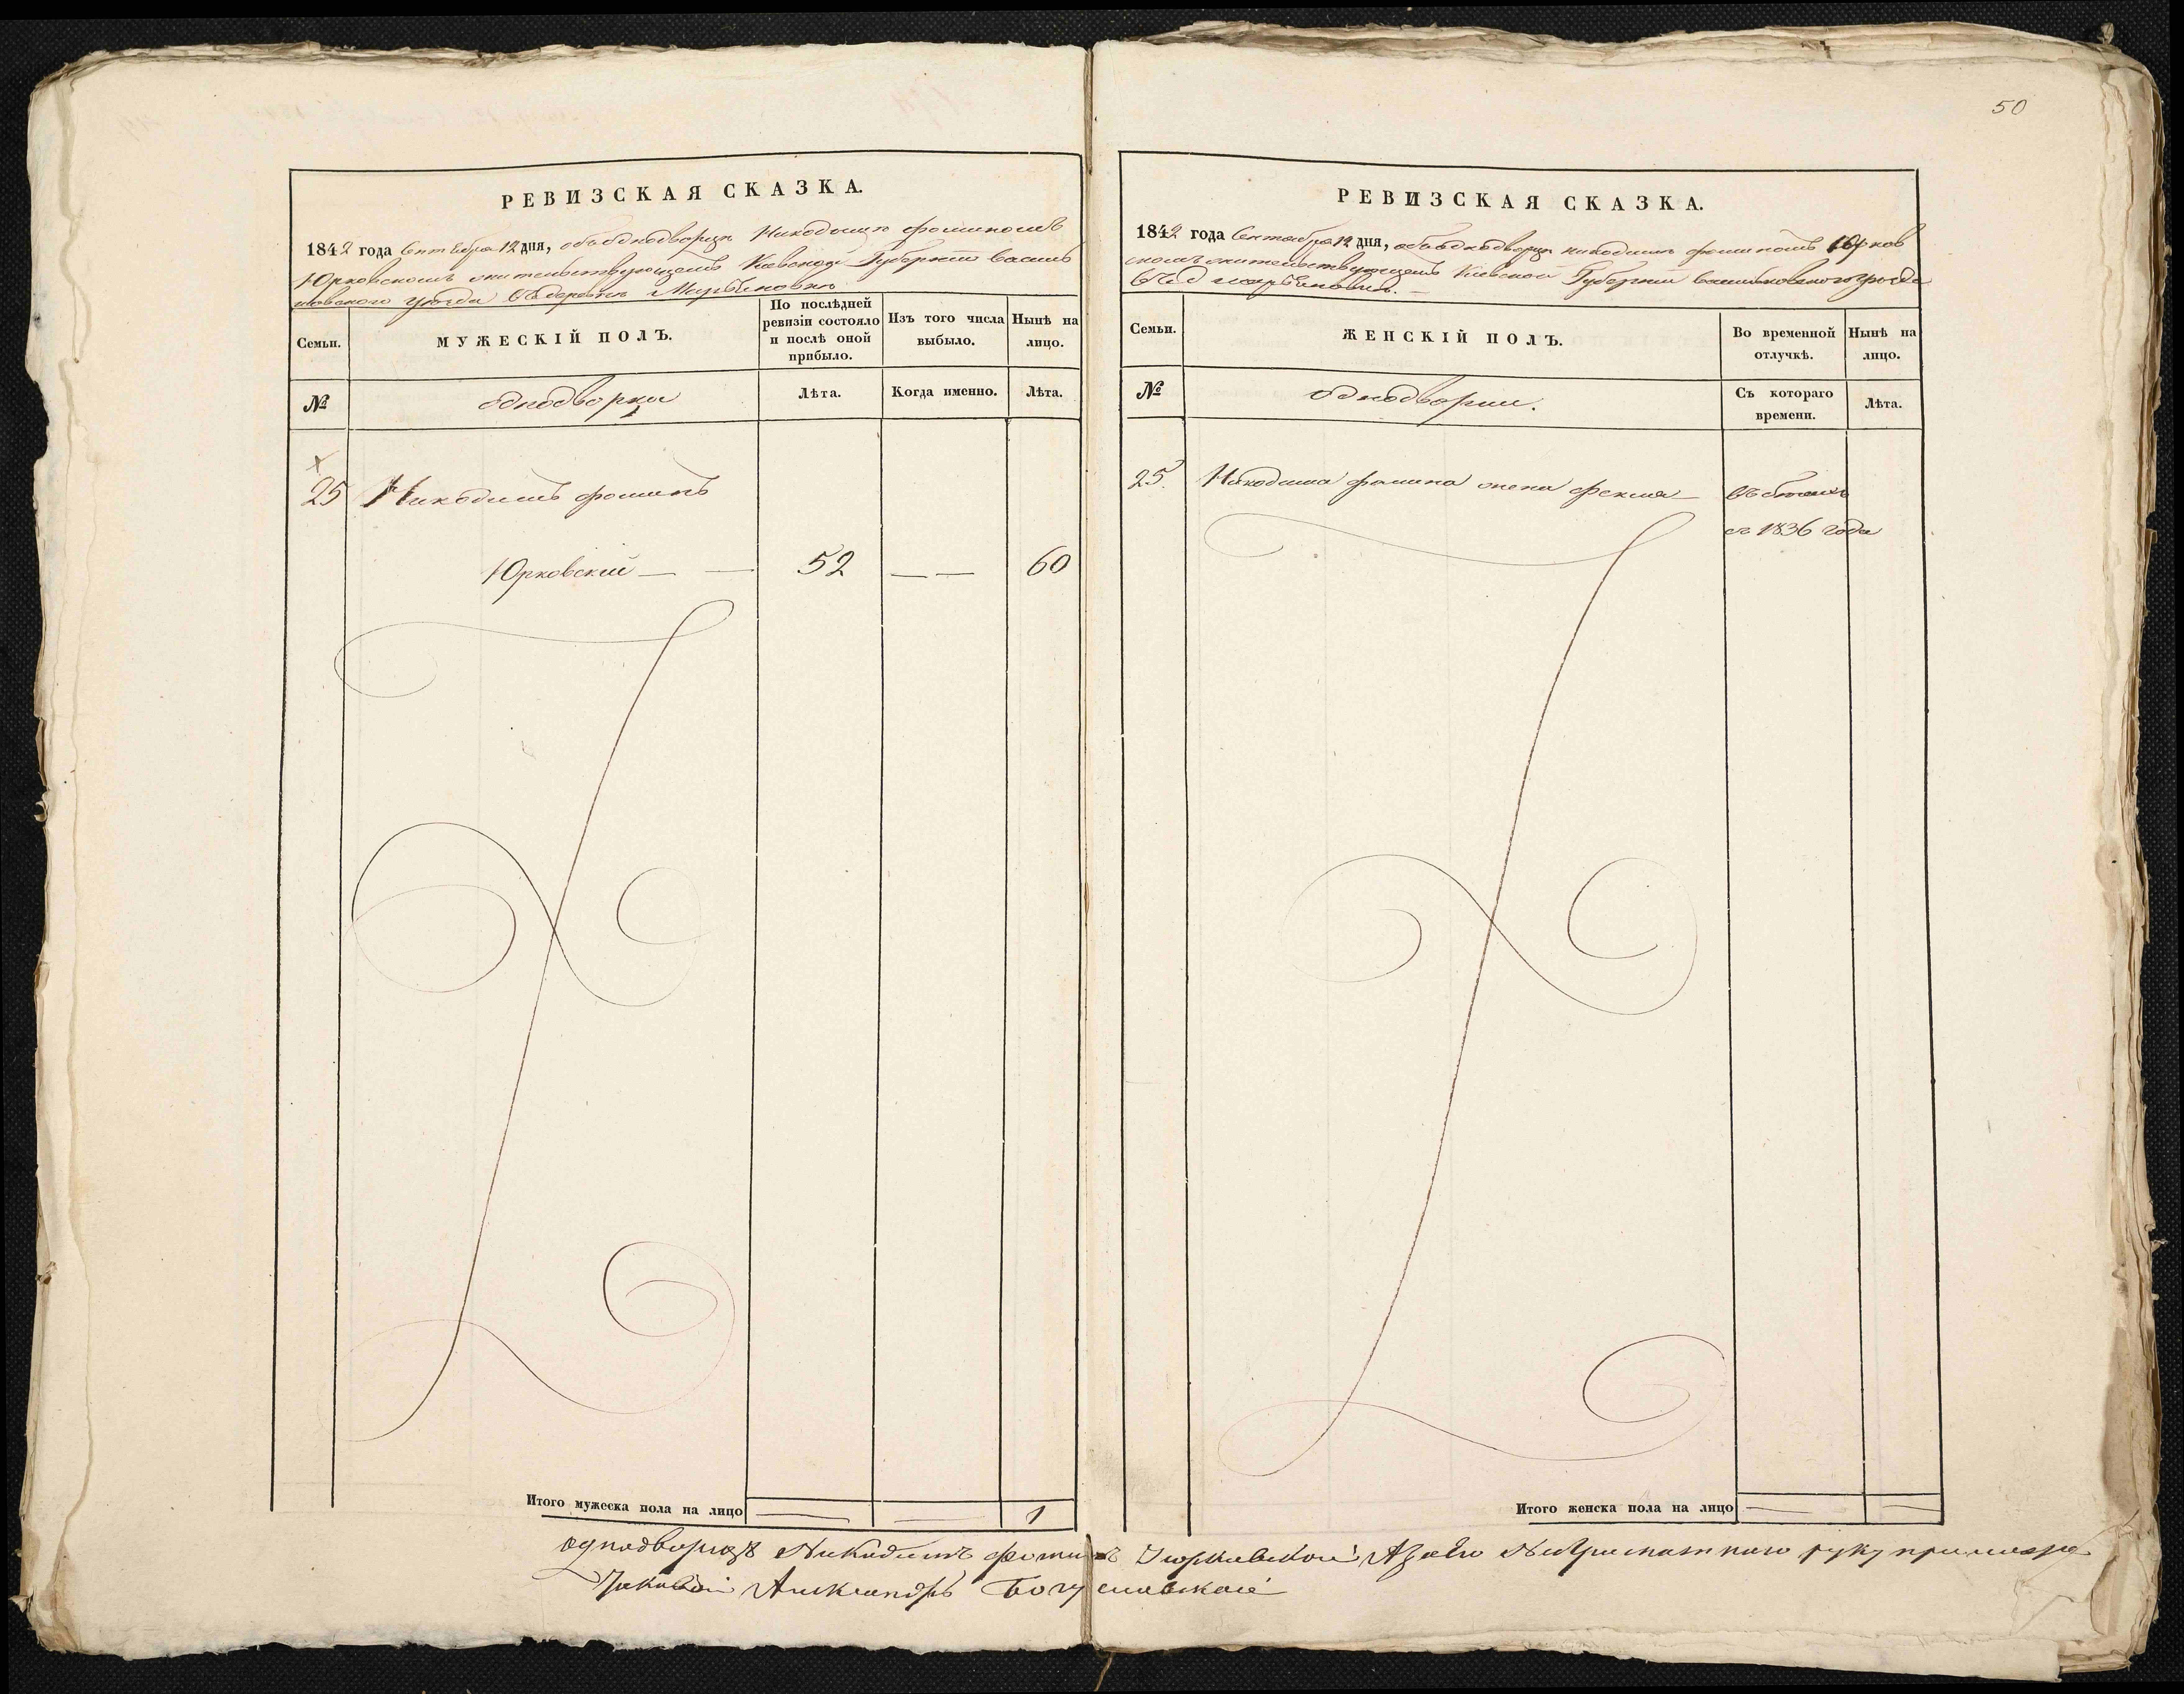 50
РЕВИЗСКАЯ СКАЗКА.
1842 года Сентября 12 дня, объ однодворцѣ Никодимѣ Фоминомъ
Юрковскомъ жительствующемъ Киевской Губерніи Василь
ковскаго уѣзда въ деревнѣ
Семьи.
МУЖЕСКІЙ ПОЛЪ.
По послѣдней ревизіи состояло и послѣ оной прибыло.
Изъ того числа выбыло.
Нынѣ на лицо.
№
однодворки
Лѣта.
Когда именно.
Лѣта.
25 Никодимъ Фоминъ
Юрковскій — — 52 — — 60
Итого мужеска пола на лицо — — 1
РЕВИЗСКАЯ СКАЗКА.
1842 года Сентября 12 дня, объ однодворцѣ Никодимѣ Фоминомъ Юрков
скомъ жительствующемъ Киевской Губерніи Васильковского уѣзда
Семьи.
ЖЕНСКІЙ ПОЛЪ.
Во временной отлучкѣ.
Нынѣ на лицо.
№
однодворки.
Съ котораго времени.
Лѣта.
25. Никодима Фомина жена Фекла —
съ 1836 года
Итого женска пола на лицо — —
однодворецъ Никодимъ Фоминъ Юрковской А за его неграмотного руку приложи
Александръ Богуславской